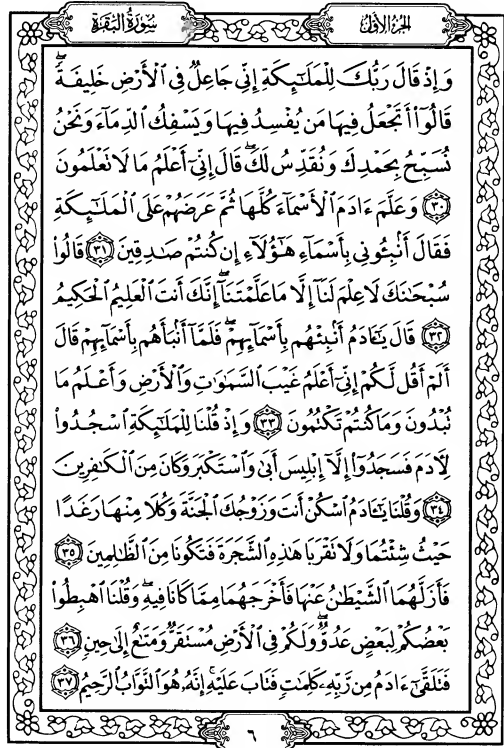 الجزء الأول
سورة البقرة
وَإِذْ قَالَ رَبُّكَ لِلْمَلَٰٓئِكَةِ إِنِّي جَاعِلٌ فِي ٱلْأَرْضِ خَلِيفَةًۖ
قَالُوٓا۟ أَتَجْعَلُ فِيهَا مَن يُفْسِدُ فِيهَا وَيَسْفِكُ ٱلدِّمَآءَ وَنَحْنُ
نُسَبِّحُ بِحَمْدِكَ وَنُقَدِّسُ لَكَۖ قَالَ إِنِّيٓ أَعْلَمُ مَا لَا تَعْلَمُونَ
٣٠ وَعَلَّمَ ءَادَمَ ٱلْأَسْمَآءَ كُلَّهَا ثُمَّ عَرَضَهُمْ عَلَى ٱلْمَلَٰٓئِكَةِ
فَقَالَ أَنۢبِـُٔونِي بِأَسْمَآءِ هَٰٓؤُلَآءِ إِن كُنتُمْ صَٰدِقِينَ ٣١ قَالُوا۟
سُبْحَٰنَكَ لَا عِلْمَ لَنَآ إِلَّا مَا عَلَّمْتَنَآۖ إِنَّكَ أَنتَ ٱلْعَلِيمُ ٱلْحَكِيمُ
٣٢ قَالَ يَٰٓـَٔادَمُ أَنۢبِئْهُم بِأَسْمَآئِهِمْۖ فَلَمَّآ أَنۢبَأَهُم بِأَسْمَآئِهِمْ قَالَ
أَلَمْ أَقُل لَّكُمْ إِنِّيٓ أَعْلَمُ غَيْبَ ٱلسَّمَٰوَٰتِ وَٱلْأَرْضِ وَأَعْلَمُ مَا
تُبْدُونَ وَمَا كُنتُمْ تَكْتُمُونَ ٣٣ وَإِذْ قُلْنَا لِلْمَلَٰٓئِكَةِ ٱسْجُدُوا۟
لِءَادَمَ فَسَجَدُوٓا۟ إِلَّآ إِبْلِيسَ أَبَىٰ وَٱسْتَكْبَرَ وَكَانَ مِنَ ٱلْكَٰفِرِينَ
٣٤ وَقُلْنَا يَٰٓـَٔادَمُ ٱسْكُنْ أَنتَ وَزَوْجُكَ ٱلْجَنَّةَ وَكُلَا مِنْهَا رَغَدًا
حَيْثُ شِئْتُمَا وَلَا تَقْرَبَا هَٰذِهِ ٱلشَّجَرَةَ فَتَكُونَا مِنَ ٱلظَّٰلِمِينَ ٣٥
فَأَزَلَّهُمَا ٱلشَّيْطَٰنُ عَنْهَا فَأَخْرَجَهُمَا مِمَّا كَانَا فِيهِۖ وَقُلْنَا ٱهْبِطُوا۟
بَعْضُكُمْ لِبَعْضٍ عَدُوٌّۖ وَلَكُمْ فِي ٱلْأَرْضِ مُسْتَقَرٌّ وَمَتَٰعٌ إِلَىٰ حِينٍ ٣٦
فَتَلَقَّىٰٓ ءَادَمُ مِن رَّبِّهِۦ كَلِمَٰتٍ فَتَابَ عَلَيْهِۚ إِنَّهُۥ هُوَ ٱلتَّوَّابُ ٱلرَّحِيمُ ٣٧
٦